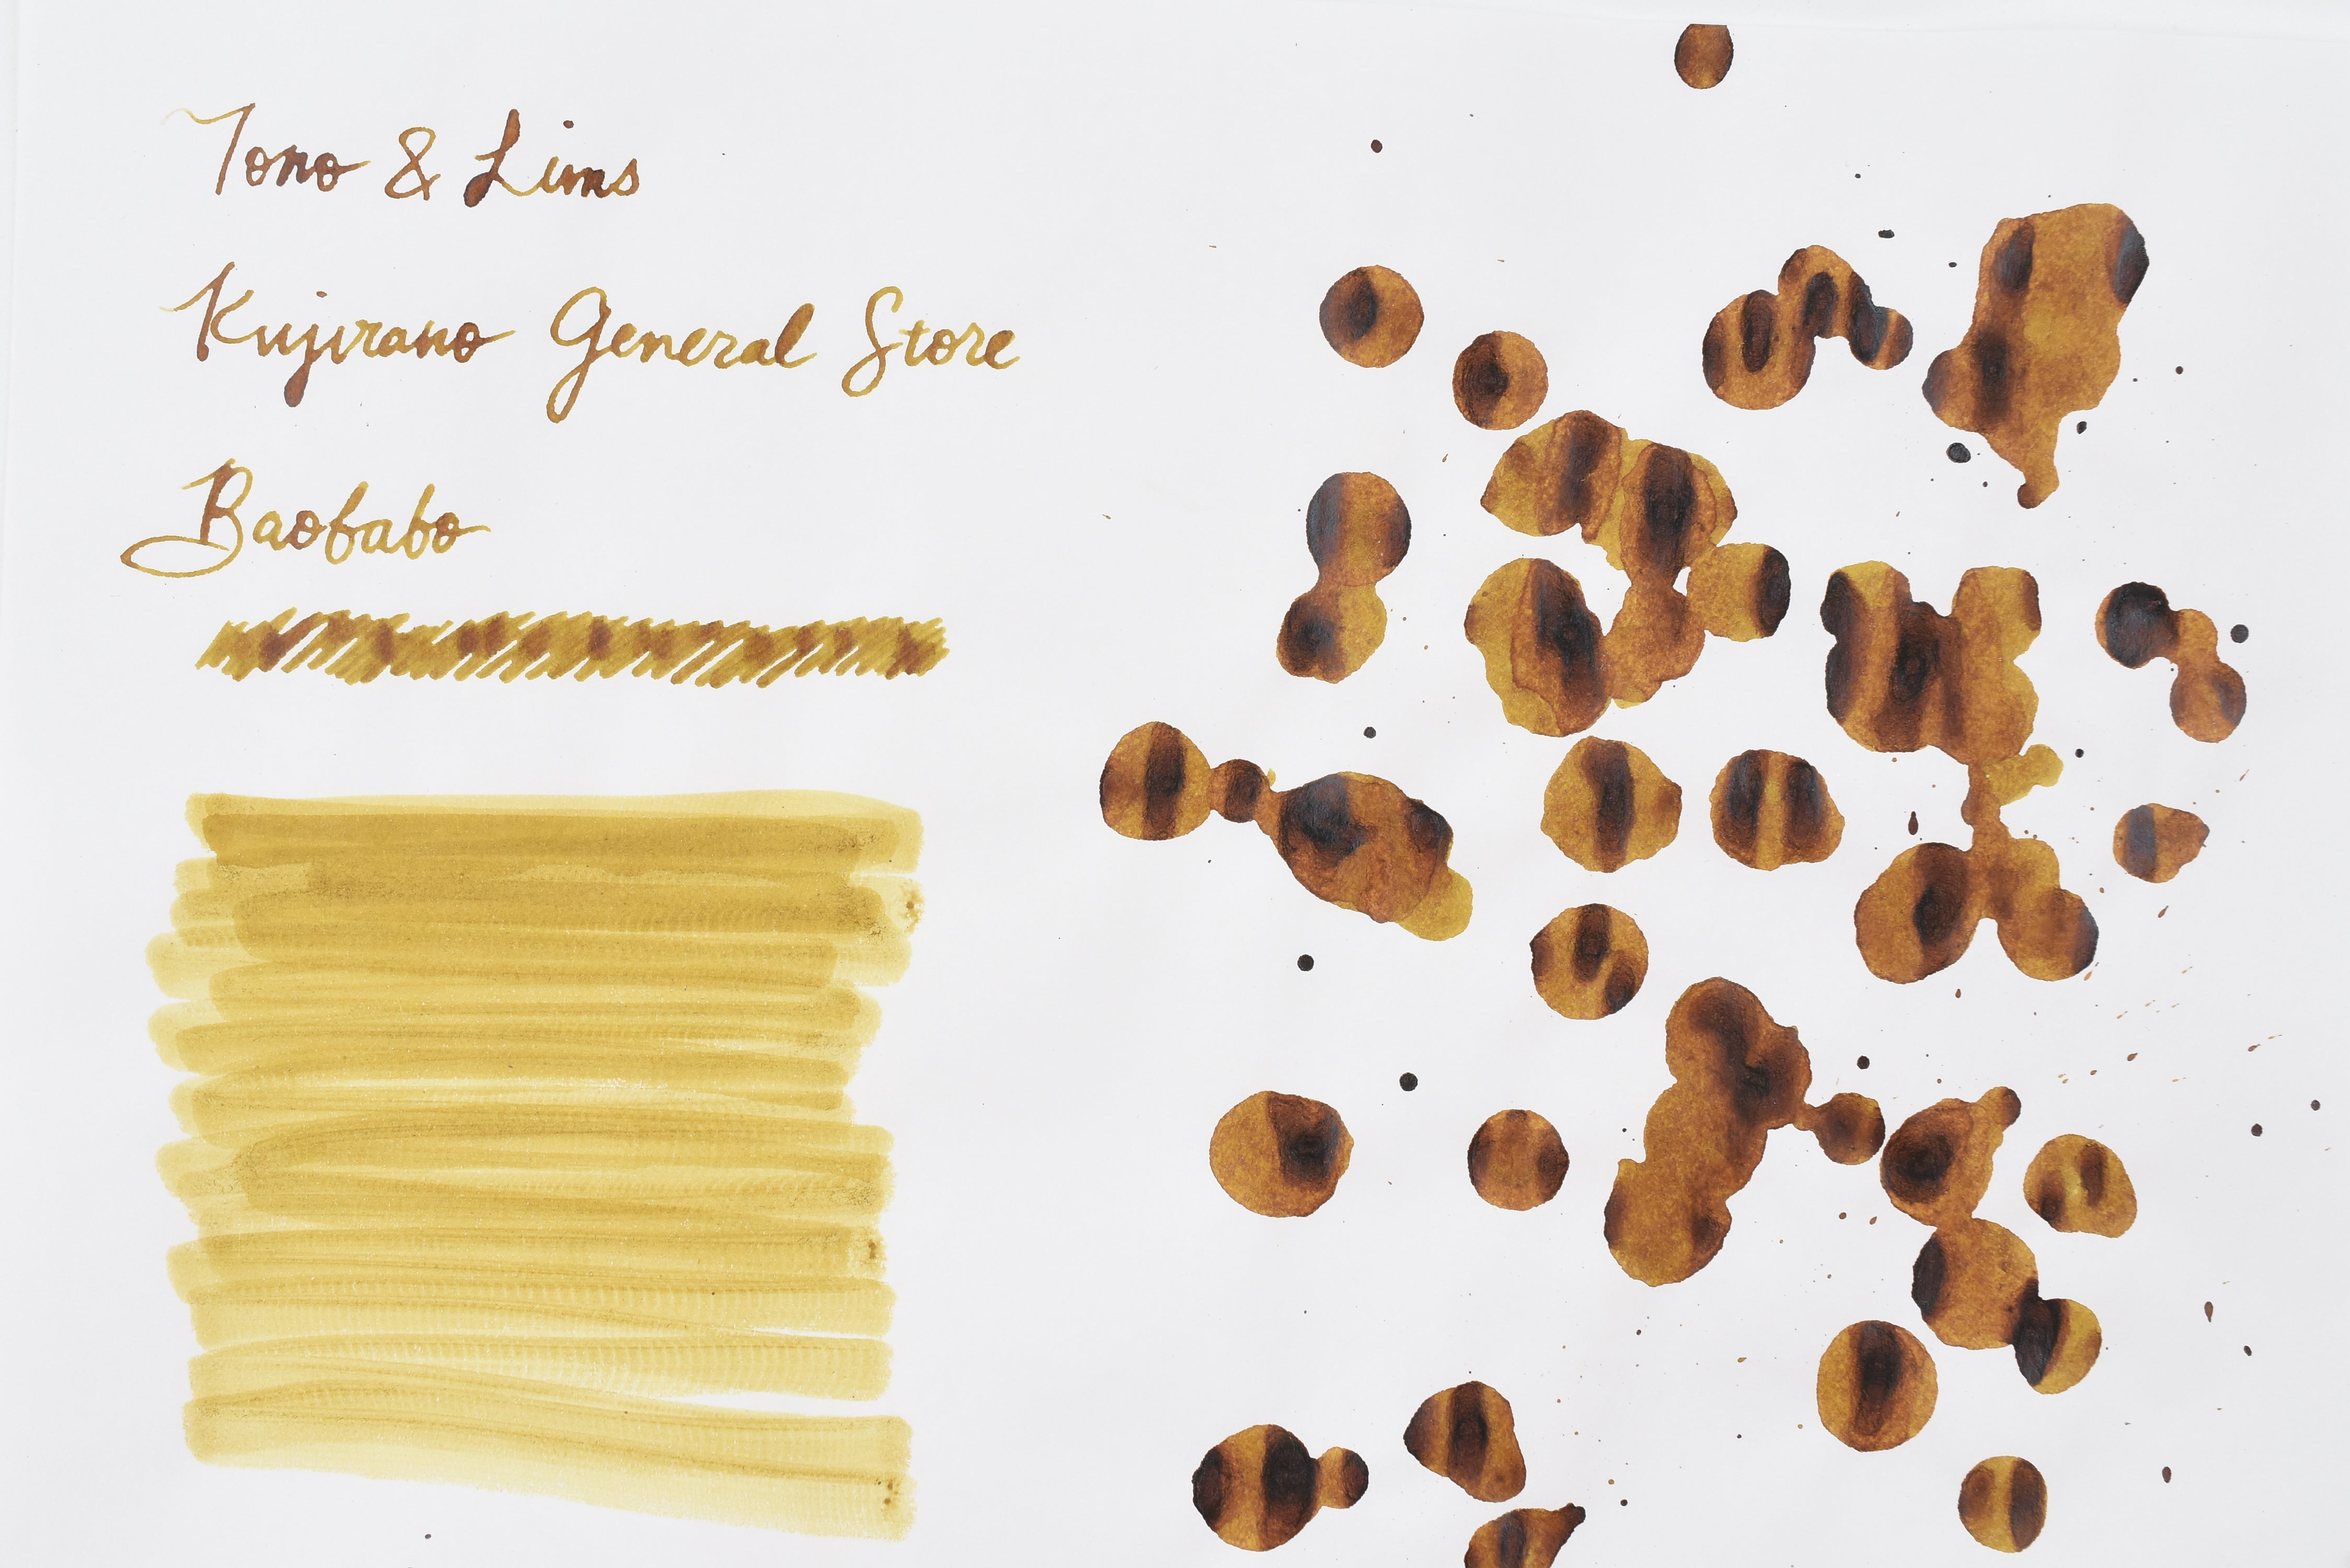 Tono & Lims
Kujirano General Store
Baobabo